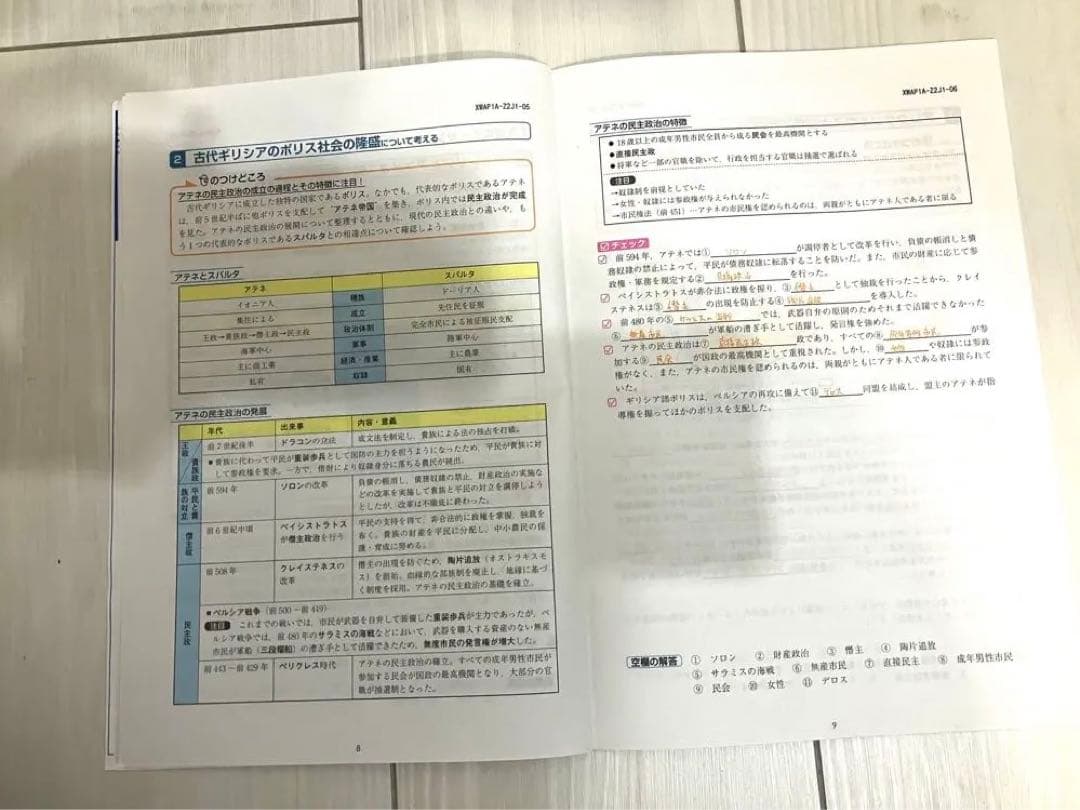 XWAF1A-Z2J1-05
2 古代ギリシアのポリス社会の隆盛について考える
目のつけどころ
アテネの民主政治の成立の過程とその特徴に注目！
古代ギリシアに成立した独特の国家であるポリス。なかでも，代表的なポリスであるアテネ
は，前5世紀半ばに他ポリスを支配して“アテネ帝国”を築き，ポリス内では民主政治が完成
を見た。アテネの民主政治の展開について整理するとともに，現代の民主政治との違いや，も
う1つの代表的なポリスであるスパルタとの相違点について確認しよう。
アテネとスパルタ
アテネ スパルタ
イオニア人 種族 ドーリア人
集住による 成立 先住民を征服
王政→貴族政→僭主政→民主政 政治体制 完全市民による被征服民支配
海軍中心 軍事 陸軍中心
主に商工業 経済・産業 主に農業
私有 奴隷 国有
アテネの民主政治の発展
年代 出来事 内容・意義
王政／貴族政
前7世紀後半 ドラコンの立法 成文法を制定し，貴族による法の独占を打破。
●貴族に代わって平民が重装歩兵として国防の主力を担うようになったため，平民が貴族に対
して参政権を要求。一方で，借財により奴隷身分に落ちる農民が続出。
平民と貴族の対立
前594年 ソロンの改革 負債の帳消し，債務奴隷の禁止，財産政治の実施な
どの改革を実施して貴族と平民の対立を調停しよう
としたが，改革は不徹底に終わった。
僭主政
前6世紀中頃 ペイシストラトス
が僭主政治を行う
平民の支持を得て，非合法的に政権を掌握，独裁を
布く。貴族の財産を平民に分配し，中小農民の保
護・育成に努める。
民主政
前508年 クレイステネスの
改革
僭主の出現を防ぐため，陶片追放（オストラキスモ
ス）を創始。血縁的な部族制を廃止し，地縁に基づ
く制度を採用。アテネの民主政治の基礎を確立。
●ペルシア戦争（前500－前449）
注目 これまでの戦いでは，市民が武器を自弁して装備した重装歩兵が主力であったが，ペ
ルシア戦争では，前480年のサラミスの海戦などにおいて，武器を購入する資産のない無産
市民が軍船（三段櫂船）の漕ぎ手として活躍できたため，無産市民の発言権が増大した。
前443－前429年 ペリクレス時代 アテネの民主政治の確立。すべての成年男性市民が
参加する民会が国政の最高機関となり，大部分の官
職が抽選制となった。
8
XWAF1A-Z2J1-06
アテネの民主政治の特徴
●18歳以上の成年男性市民全員から成る民会を最高機関とする
●直接民主政
●将軍など一部の官職を除いて，行政を担当する官職は抽選で選ばれる
注目
→奴隷制を前提としていた
→女性・奴隷には参政権が与えられなかった
→市民権法（前451）…アテネの市民権を認められるのは，両親がともにアテネ人である者に限る
チェック
前594年，アテネでは① ソロン が調停者として改革を行い，負債の帳消しと債
務奴隷の禁止によって，平民が債務奴隷に転落することを防いだ。また，市民の財産に応じて参
政権・軍務を規定する② 財産政治 を行った。
ペイシストラトスが非合法に政権を握り，③ 僭主 として独裁を行ったことから，クレイ
ステネスは③ 僭主 の出現を防止する④ 陶片追放 を導入した。
前480年の⑤ サラミスの海戦 では，武器自弁の原則のためそれまで活躍できなかった
⑥ 無産市民 が軍船の漕ぎ手として活躍し，発言権を強めた。
アテネの民主政治は⑦ 直接民主政 政であり，すべての⑧ 成年男性市民 が参
加する⑨ 民会 が国政の最高機関として重視された。しかし，⑩ 女性 や奴隷には参政
権がなく，また，アテネの市民権を認められるのは，両親がともにアテネ人である者に限られて
いた。
ギリシア諸ポリスは，ペルシアの再攻に備えて⑪ デロス 同盟を結成し，盟主のアテネが指
導権を握ってほかのポリスを支配した。
空欄の解答 ① ソロン ② 財産政治 ③ 僭主 ④ 陶片追放
⑤ サラミスの海戦 ⑥ 無産市民 ⑦ 直接民主 ⑧ 成年男性市民
⑨ 民会 ⑩ 女性 ⑪ デロス
9